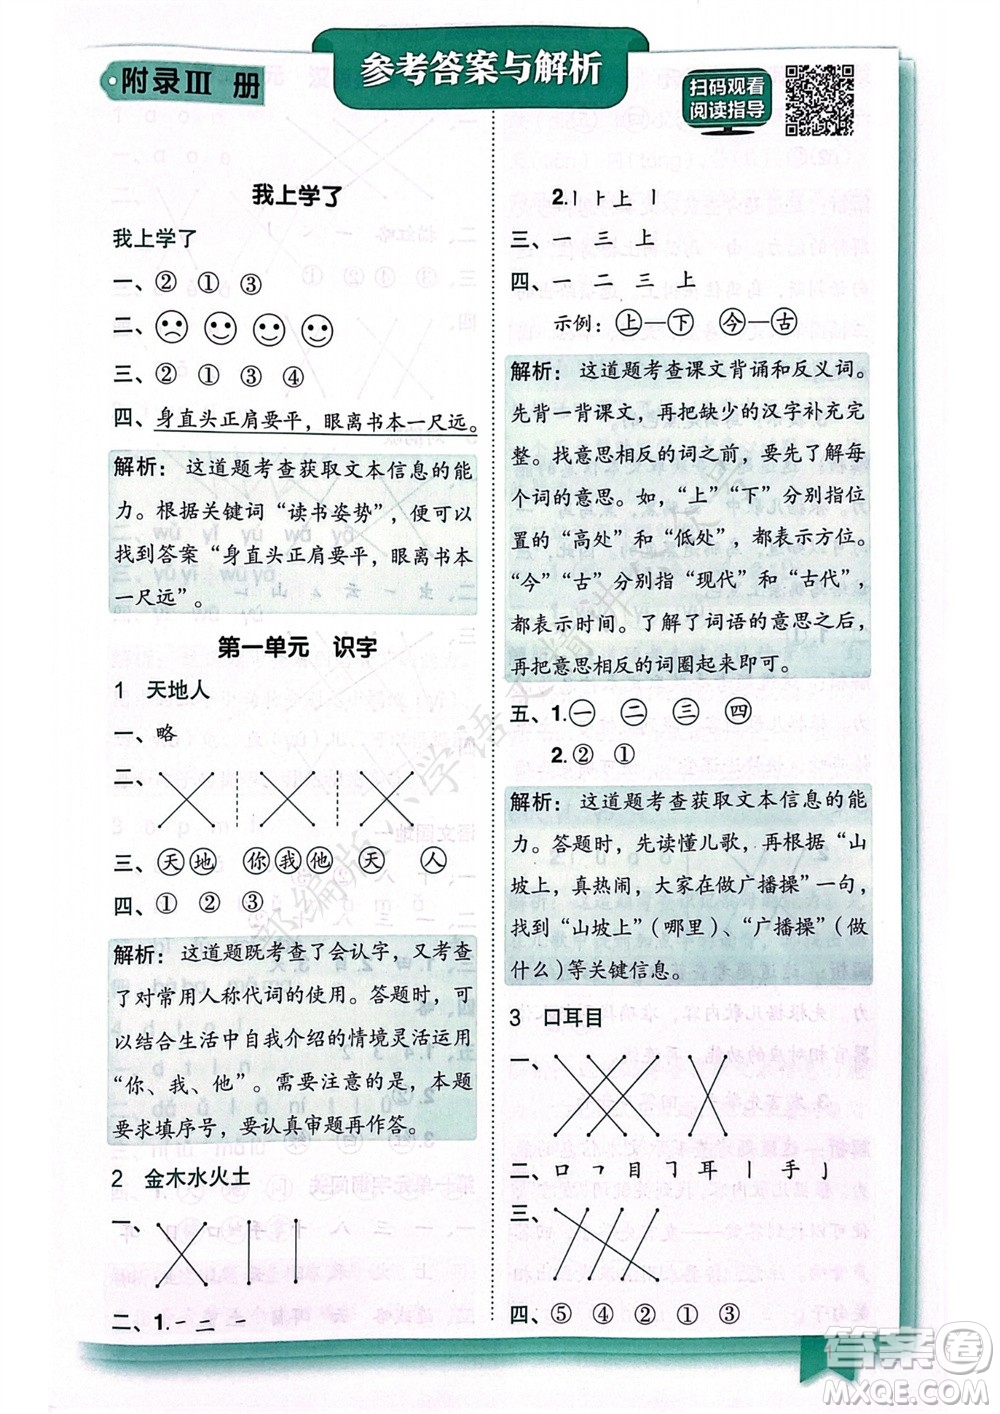 附录Ⅲ 册
参考答案与解析
扫码观看
阅读指导
我上学了
我上学了
一、② ① ③
二、
三、② ① ③ ④
四、身直头正肩要平，眼离书本一尺远。
解析：这道题考查获取文本信息的能
力。根据关键词“读书姿势”，便可以
找到答案“身直头正肩要平，眼离书本
一尺远”。
第一单元 识字
1 天地人
一、略
二、
三、天地 你我他 天 人
四、① ② ③
解析：这道题既考查了会认字，又考查
了对常用人称代词的使用。答题时，可
以结合生活中自我介绍的情境灵活运用
“你、我、他”。需要注意的是，本题
要求填序号，要认真审题再作答。
2 金木水火土
一、
二、1.一 二 一
2.丨 ⺊ 上 丨
三、一 三 上
四、一 二 三 上
示例：上—下 今—古
解析：这道题考查课文背诵和反义词。
先背一背课文，再把缺少的汉字补充完
整。找意思相反的词之前，先了解每
个词的意思。如，“上”“下”分别指位
置的“高处”和“低处”，都表示方位。
“今”“古”分别指“现代”和“古代”，
都表示时间。了解了词语的意思之后，
再把意思相反的词圈出来即可。
五、1.㊀ ㊁ ㊂ ㊃
2.② ①
解析：这道题考查获取文本信息的能
力。答题时，先读懂儿歌，再根据“山
坡上，真热闹，大家在做广播操”一句，
找到“山坡上”（哪里）、“广播操”（做
什么）等关键信息。
3 口耳目
一、
二、口 𠃍 目 𠃌 耳 丨 手 亅
三、
四、⑤ ④ ② ① ③
部编版小学语文精品
1
答案圈
MXQE.COM